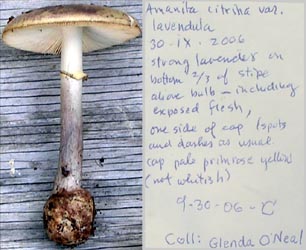 Amanita citrina var.
lavendula
30 · IX · 2006
strong lavender on
bottom 2/3 of stipe
above bulb - including
exposed flesh,
one side of cap (spots
and dashes as usual
cap pale primrose yellow
(not whitish)
9-30-06-C
Coll: Glenda O'Neal